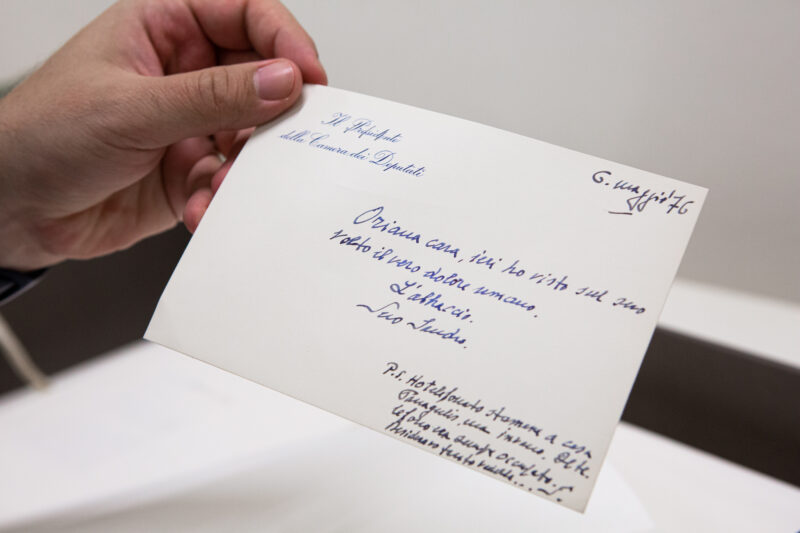 Il Presidente
della Camera dei Deputati
6. maggio '76
Oriana cara, ieri ho visto sul suo
volto il vero dolore umano.
L'abbraccio.
Suo Sandro.
P.S. Ho telefonato stamane a casa
Panagulis, ma invano. Il te-
lefono era sempre occupato.
tanto ... S.